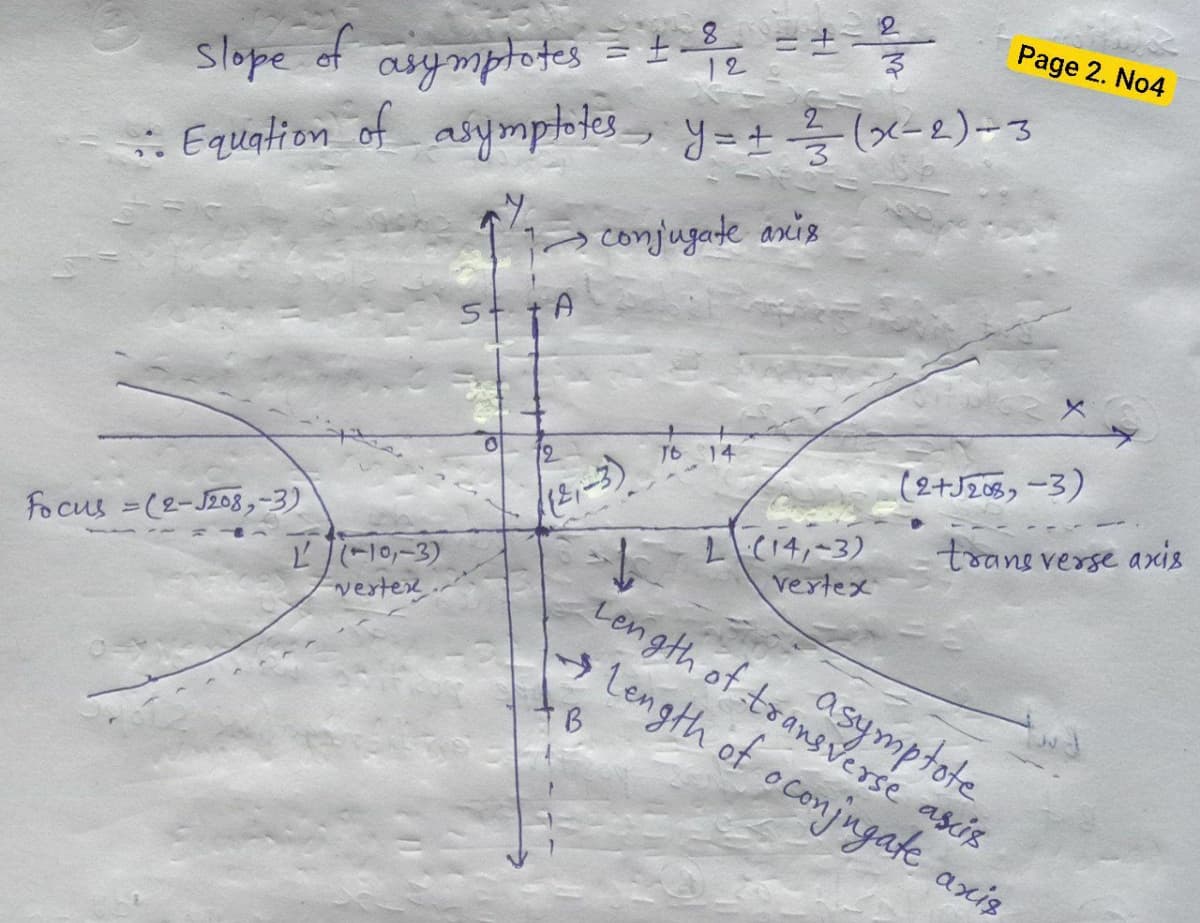 Slope of asymptotes = ± 8/12 = ± 2/3
Page 2. No4
∴ Equation of asymptotes, y = ± 2/3 (x-2)-3
Y
→ conjugate axis
5 A
X
0 2 10 14
(2,-3)
Focus = (2-√208, -3)
(2+√208, -3)
L' (-10,-3)
vertex
L (14,-3)
vertex
transverse axis
↓
Length of transverse axis
asymptote
→ Length of conjugate axis
B